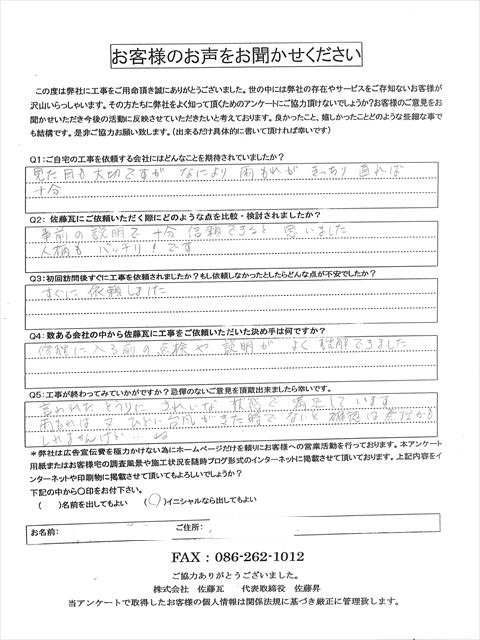 お客様のお声をお聞かせください
この度は弊社に工事をご用命頂き誠にありがとうございました。世の中には弊社の存在やサービスをご存知ないお客様が
沢山いらっしゃいます。その方たちに弊社をよく知って頂くためのアンケートにご協力頂けないでしょうか?お客様のご意見をお
聞かせいただき今後の活動に反映させていただきたいと考えております。良かったこと、嬉しかったことどのような些細な事で
も結構です。是非ご協力お願い致します。(出来るだけ具体的に書いて頂ければ幸いです)
Q1:ご自宅の工事を依頼する会社にはどんなことを期待されていましたか?
見た目も大切ですが なにより 雨もれが きっちり 直れば
十分
Q2: 佐藤瓦にご依頼いただく際にどのような点を比較・検討されましたか?
事前の説明で 十分 信頼できると 思いました
人柄も バッチリ!です
Q3:初回訪問後すぐに工事を依頼されましたか?もし依頼しなかったとしたらどんな点が不安でしたか?
すぐに 依頼しました
Q4:数ある会社の中から佐藤瓦に工事をご依頼いただいた決め手は何ですか?
修理に入る前の点検や 説明が よく理解できました
Q5:工事が終わってみていかがですか?忌憚のないご意見を頂戴出来ましたら幸いです。
言われた とうりに きれいな 状態で 満足しています
雨もれは 又 ひどい 台風が きた時で ないと 確認は
しれませんけど…ね
*弊社は広告宣伝費を極力かけない為にホームページだけを頼りにお客様への営業活動を行っております。本アンケート
用紙またはお客様宅の調査風景や施工状況を随時ブログ形式のインターネットに掲載させて頂いております。上記内容をイ
ンターネットや印刷物に掲載させて頂いてもよろしいでしょうか?
下記の中から〇印をお付下さい。
( )名前を出してもよい (〇)イニシャルなら出してもよい
お名前: ご住所:
FAX:086-262-1012
ご協力ありがとうございました。
株式会社 佐藤瓦 代表取締役 佐藤昇
当アンケートで取得したお客様の個人情報は関係法規に基づき厳正に管理致します。